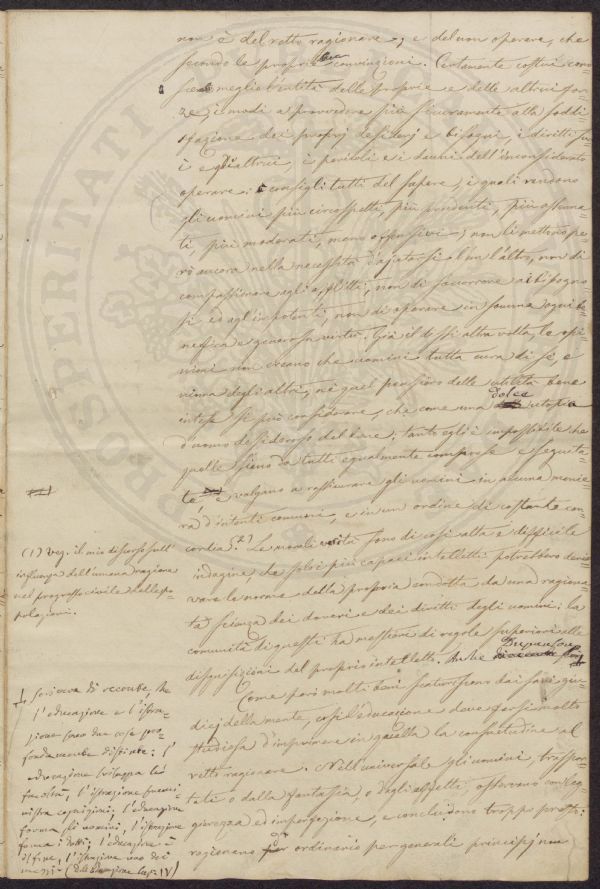 non è del retto ragionare, e del um operare, che
secondo le proprie sue convinzioni. Certamente costui cono-
sce meglio l'entità delle proprie e delle altrui for-
ze, i modi a provvedere più sicuramente alla soddi-
sfazione dei proprj desiderj e bisogni, i diritti suo-
i e gli altrui, i pericoli e i danni dell'inconsiderato
operare: consigli tutti del sapere, i quali rendono
gli uomini più circospetti, più prudenti, più
ti, più moderati, meno offensivi; non li mettono pe-
rò ancora nella necessità d'ajutarsi l'un l'altro, non di
compassionare agli afflitti, non di soccorrere ai bisogno-
si ed agl'impotenti, non di operare in somma ogni be-
nefica e generosa virtù. Già il dissi altra volta, le opi-
nioni non creano che uomini tutta cura di sé, e
niuna degli altri, né quel pensiero delle utilità bene
intese si può considerare, che come una dolce utopia
d'uomo desideroso del bene: tanto egli è impossibile che
quelle sieno da tutti egualmente comprese e seguita-
te, e valgano a rassicurare gli uomini in alcuna manie-
ra d'intenti comuni, e in un ordine di costante con-
cordia. Le morali verità sono di così alta e difficile
indagine, che solo i più capaci intelletti potrebbero deri-
vare le norme della propria condotta da una ragiona-
ta scienza dei doveri e dei diritti degli uomini: la
comunità di questi ha mestieri di regole superiori alle
disquisizioni del proprio intelletto.
Come però molti beni scaturiscono dai savj giu-
dicj della mente, così l'educazione deve farsi molto
studiosa d'imprimere in quella la consuetudine al
retto ragionare. Nell'universale gli uomini, traspor-
tati o dalla fantasia, o dagli affetti, osservano con leg-
gierezza ed imperfezione, e concludono troppo presto:
ragionano per ordinario per generali principj,
(1) Veg. il mio discorso sull'
influenza dell'umana ragione
nel progresso civile delle po-
polazioni.
scriveva di recente, che
l'educazione e l'istru-
zione sono due cose pro-
fondamente distinte: l'
educazione sviluppa le
facoltà, l'istruzione sommi-
nistra cognizioni: l'educazione
forma gli uomini, l'istruzione
forma i dotti; l'educazione è
il fine, l'istruzione uno dei
mezzi. (Dell'Educazione Cap. IV)